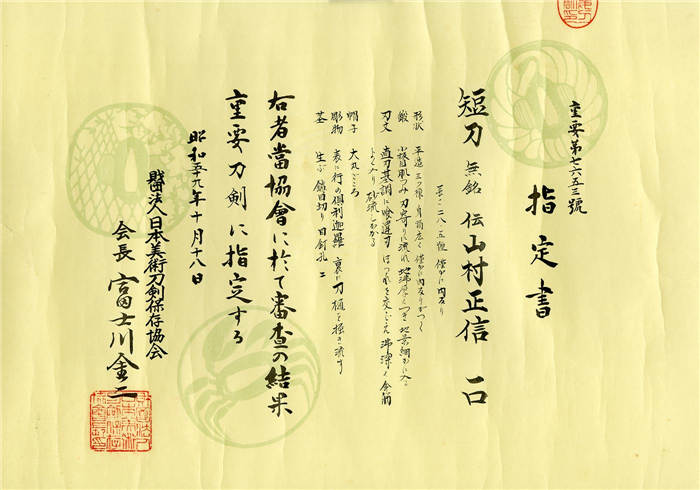 重要第七六五三號
指定書
短刀 無銘 伝山村正信 一口
長サ二八・五糎 僅かに内反り
形状 平造 三つ棟 身幅広く 僅かに内反りがつく
鍛 小板目肌つみ 刃寄りに流れ 地沸厚くつき 地景細かに入る
刃文 直刃基調に喰違刃 ほつれを交じえ 沸深く 金筋
よく入り 砂流しかかる
帽子 大丸ごころ
彫物 表に行の倶利迦羅 裏に刀樋を掻き流す
茎 生ぶ 鑢目切り 目釘孔二
右者當協會に於て審査の結果
重要刀剣に指定する
昭和五十九年十月十八日
財団法人日本美術刀剣保存協会
会長 富士川金二